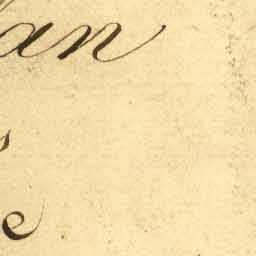 an
s
e